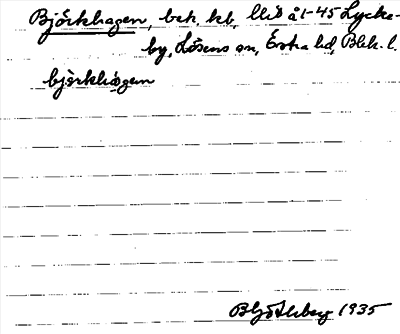 Björkhagen, bek. kb. Ulid å 1-45 Lycke-
by, Lösens sn, Östra hd, Blek. l.
björkhágen
B Hjö Ahlberg 1935